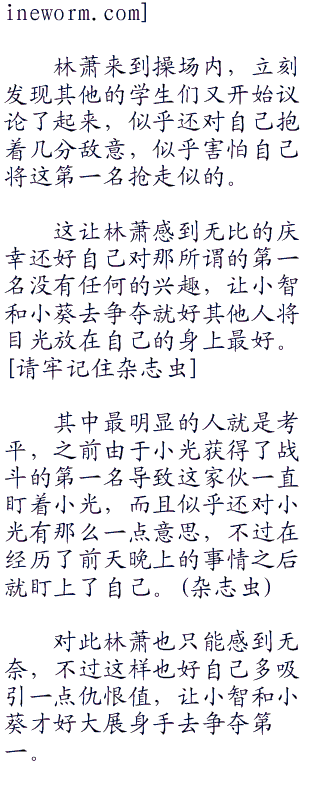 ineworm.com]
林萧来到操场内，立刻
发现其他的学生们又开始议
论了起来，似乎还对自己抱
着几分敌意，似乎害怕自己
将这第一名抢走似的。
这让林萧感到无比的庆
幸还好自己对那所谓的第一
名没有任何的兴趣，让小智
和小葵去争夺就好其他人将
目光放在自己的身上最好。
[请牢记住杂志虫]
其中最明显的人就是考
平，之前由于小光获得了战
斗的第一名导致这家伙一直
盯着小光，而且似乎还对小
光有那么一点意思，不过在
经历了前天晚上的事情之后
就盯上了自己。(杂志虫)
对此林萧也只能感到无
奈，不过这样也好自己多吸
引一点仇恨值，让小智和小
葵才好大展身手去争夺第
一。